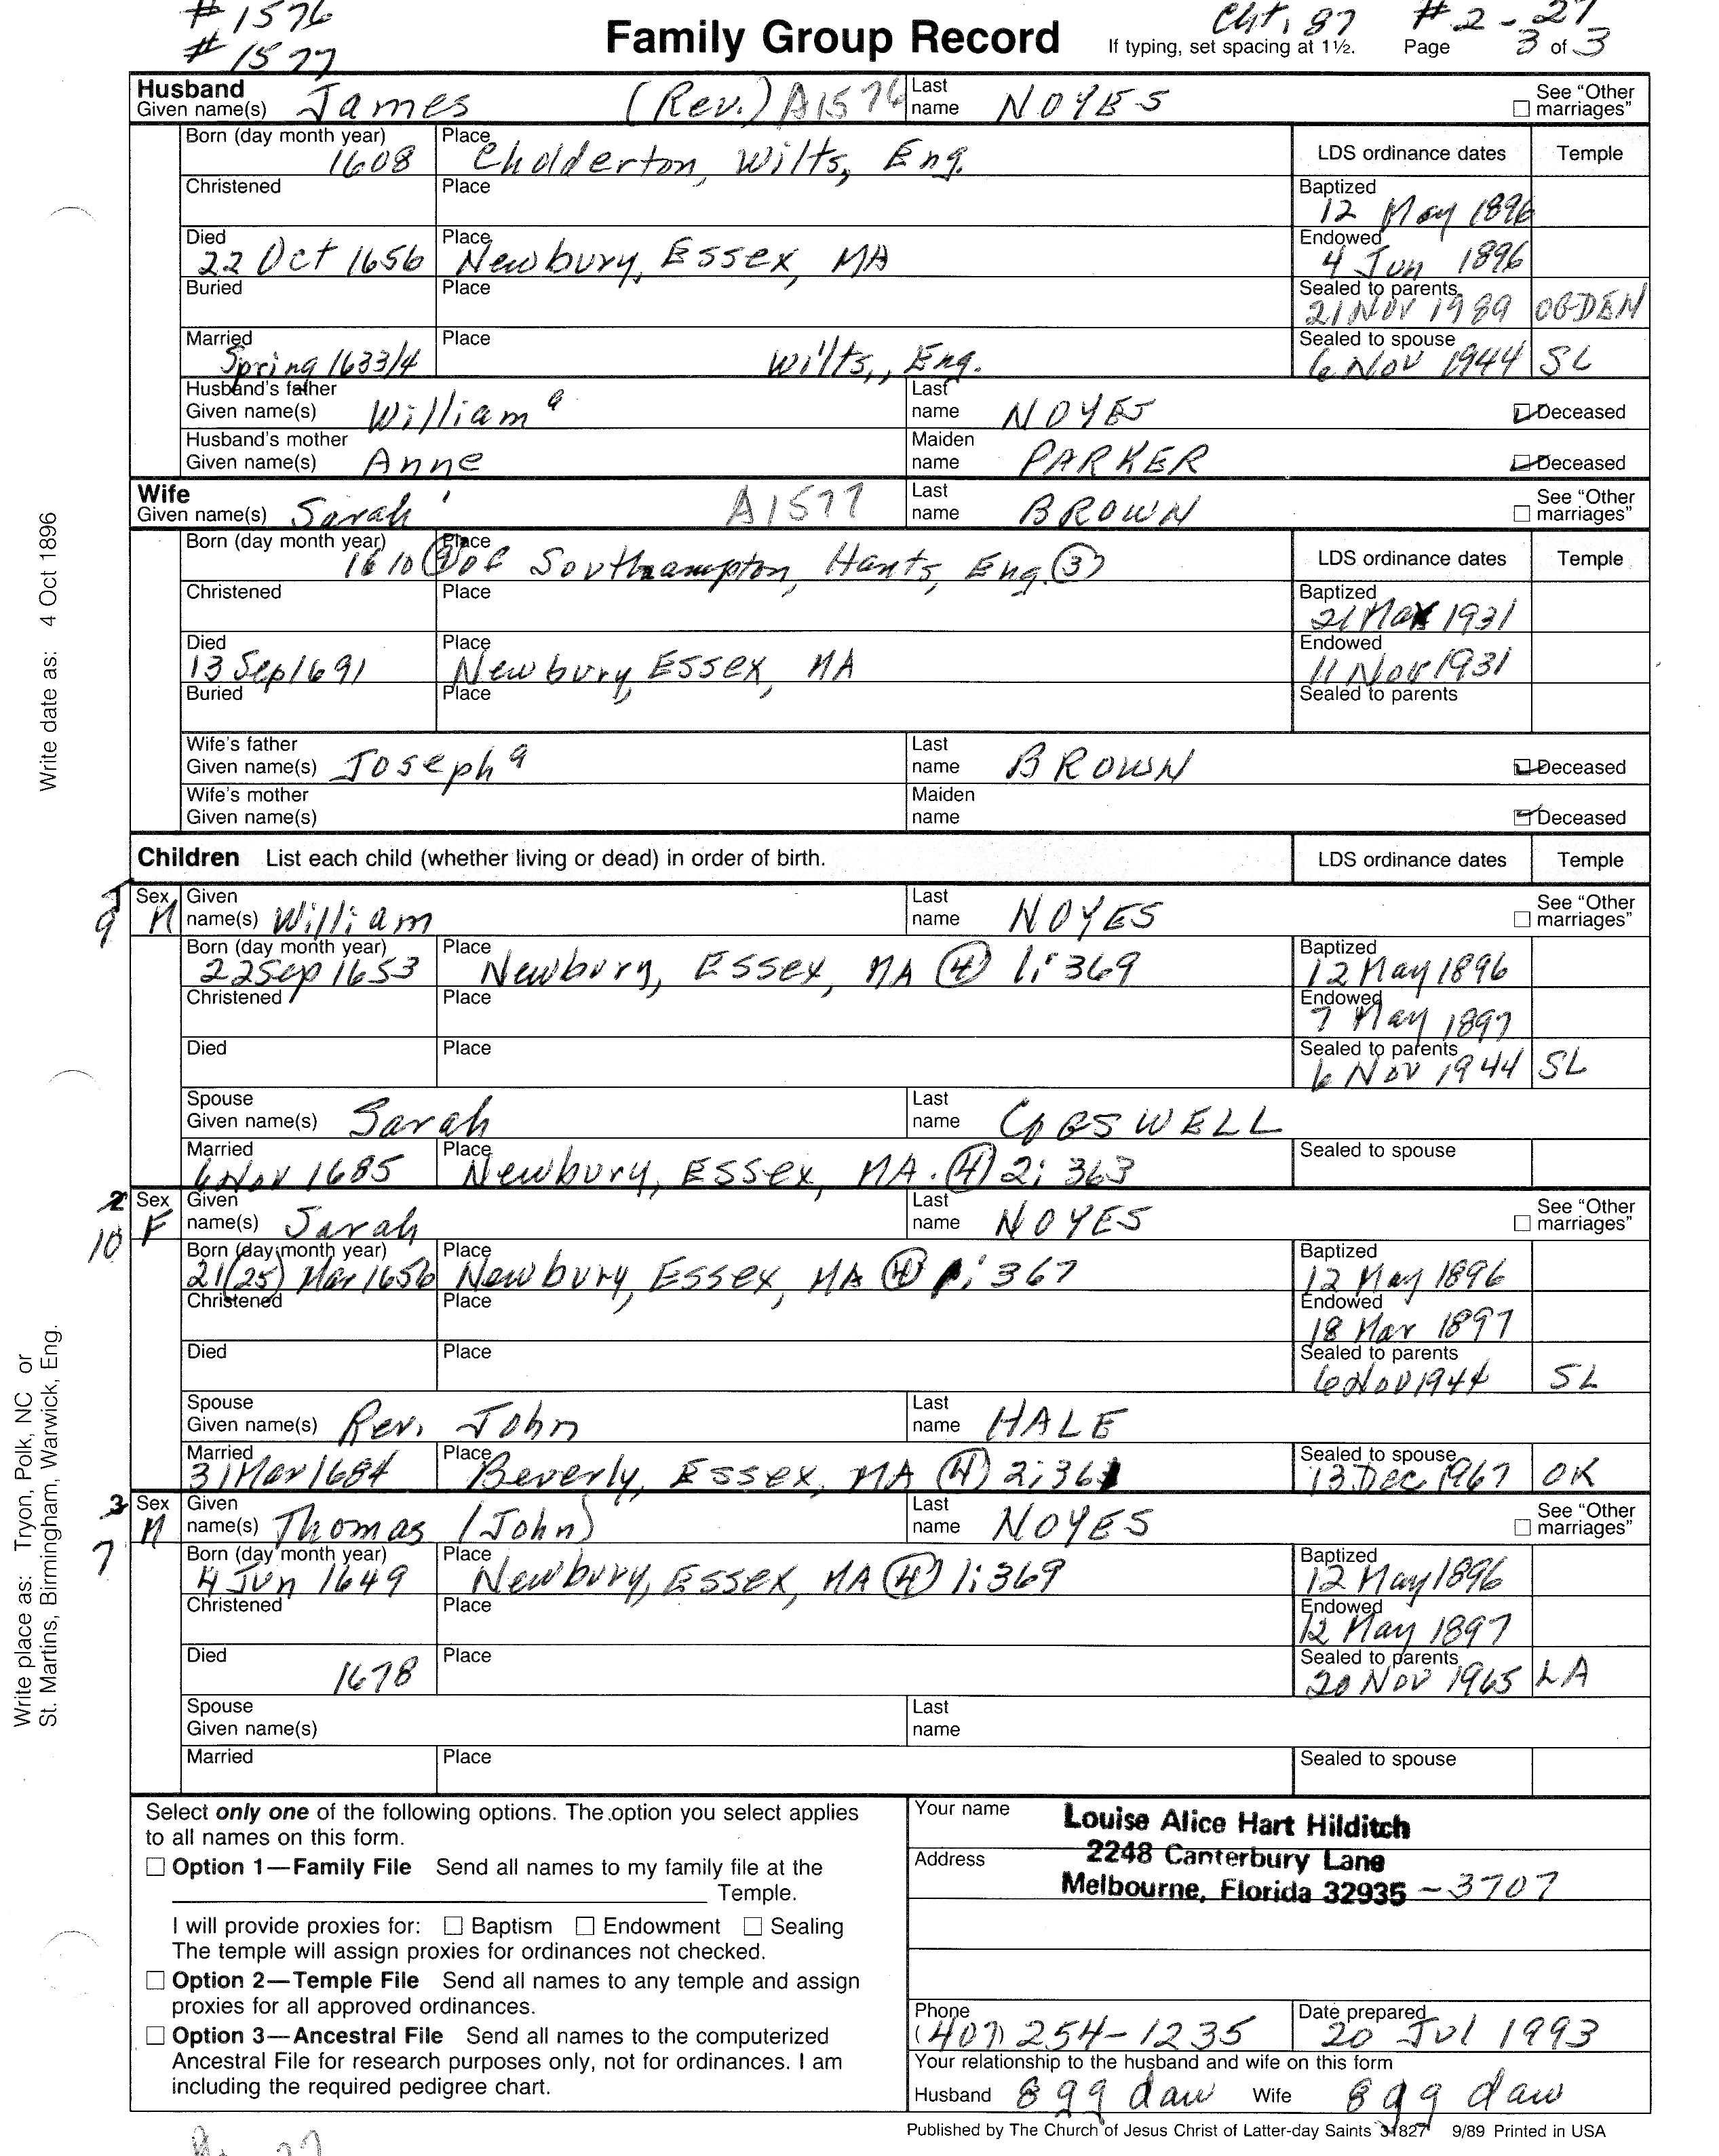 #1576 Cht. 87 #2-27
#1577 Family Group Record If typing, set spacing at 1½. Page 3 of 3
Husband
Given name(s) James (Rev.) A1576 Last name NOYES See "Other marriages"
Born (day month year) 1608 Place Cholderton, Wilts, Eng. LDS ordinance dates Temple
Christened Place Baptized 12 May 1896
Died 22 Oct 1656 Place Newbury, Essex, MA Endowed 4 Jun 1896
Buried Place Sealed to parents 21 NOV 1989 OGDEN
Married Spring 1633/4 Place Wilts,, Eng. Sealed to spouse 6 Nov 1944 SL
Husband's father Given name(s) William 9 Last name NOYES Deceased
Husband's mother Given name(s) Anne Maiden name PARKER Deceased
Wife
Given name(s) Sarah A1577 Last name BROWN See "Other marriages"
Born (day month year) 1610 Place of Southampton, Hants, Eng. (3) LDS ordinance dates Temple
Christened Place Baptized 21 Max 1931
Died 13 Sep 1691 Place Newbury, Essex, MA Endowed 11 Nov 1931
Buried Place Sealed to parents
Wife's father Given name(s) Joseph 9 Last name BROWN Deceased
Wife's mother Given name(s) Maiden name Deceased
Children List each child (whether living or dead) in order of birth. LDS ordinance dates Temple
9 Sex M Given name(s) William Last name NOYES See "Other marriages"
Born (day month year) 22 Sep 1653 Place Newbury, Essex, MA (4) 1:369 Baptized 12 May 1896
Christened Place Endowed 7 May 1897
Died Place Sealed to parents 6 Nov 1944 SL
Spouse Given name(s) Sarah Last name
Married 6 Nov 1685 Place Newbury, Essex, MA. (4) 2; 363 Sealed to spouse
2 10 Sex F Given name(s) Sarah Last name NOYES See "Other marriages"
Born (day month year) 21(25) Mar 1656 Place Newbury, Essex, MA (4) 1; 367 Baptized 12 May 1896
Christened Place Endowed 18 Mar 1897
Died Place Sealed to parents 6 Nov 1944 SL
Spouse Given name(s) Rev. John Last name HALE
Married 31 Mar 1684 Place Beverly, Essex, MA (4) 2;361 Sealed to spouse 13 Dec 1967 OK
3 7 Sex M Given name(s) Thomas (John) Last name NOYES See "Other marriages"
Born (day month year) 4 Jun 1649 Place Newbury, Essex, MA (4) 1:369 Baptized 12 May 1896
Christened Place Endowed 12 May 1897
Died 1678 Place Sealed to parents 20 Nov 1965 LA
Spouse Given name(s) Last name
Married Place Sealed to spouse
Select only one of the following options. The option you select applies
to all names on this form.
Option 1—Family File Send all names to my family file at the
Temple.
I will provide proxies for: Baptism Endowment Sealing
The temple will assign proxies for ordinances not checked.
Option 2—Temple File Send all names to any temple and assign
proxies for all approved ordinances.
Option 3—Ancestral File Send all names to the computerized
Ancestral File for research purposes only, not for ordinances. I am
including the required pedigree chart.
Your name Louise Alice Hart Hilditch
Address 2248 Canterbury Lane
Melbourne, Florida 32935 -3707
Phone (407) 254-1235 Date prepared 20 Jul 1993
Your relationship to the husband and wife on this form
Husband 8 gg daw Wife 8 gg daw
Published by The Church of Jesus Christ of Latter-day Saints 31827 9/89 Printed in USA
Write date as: 4 Oct 1896
Write place as: Tryon, Polk, NC or
St. Martins, Birmingham, Warwick, Eng.